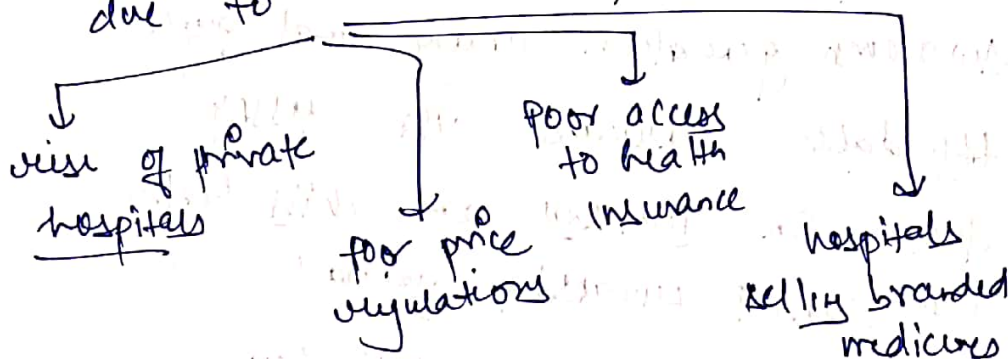 due to
rise of private
hospitals
poor price
regulations
poor access
to health
insurance
hospitals
selling branded
medicines